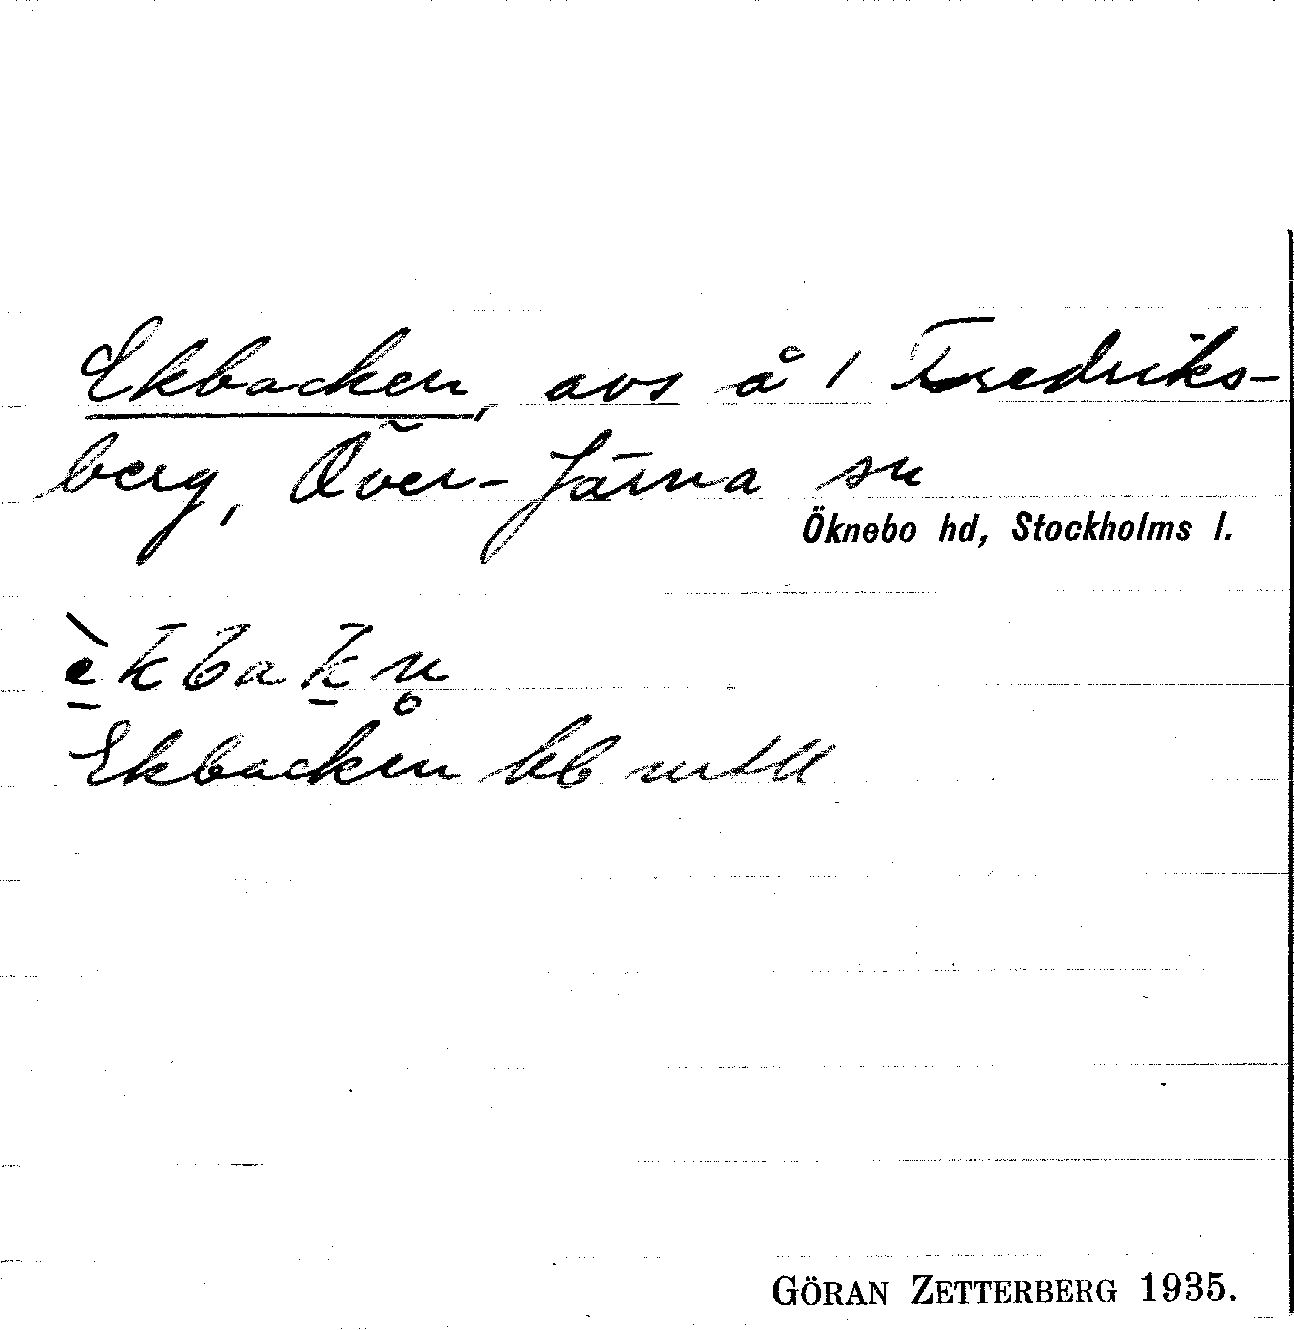 Ekbacken, avs å 1 Fredriks-
berg, Över-Järna sn
Öknebo hd, Stockholms l.
è̱kbaḵn̥
Ekbacken
GÖRAN ZETTERBERG 1935.